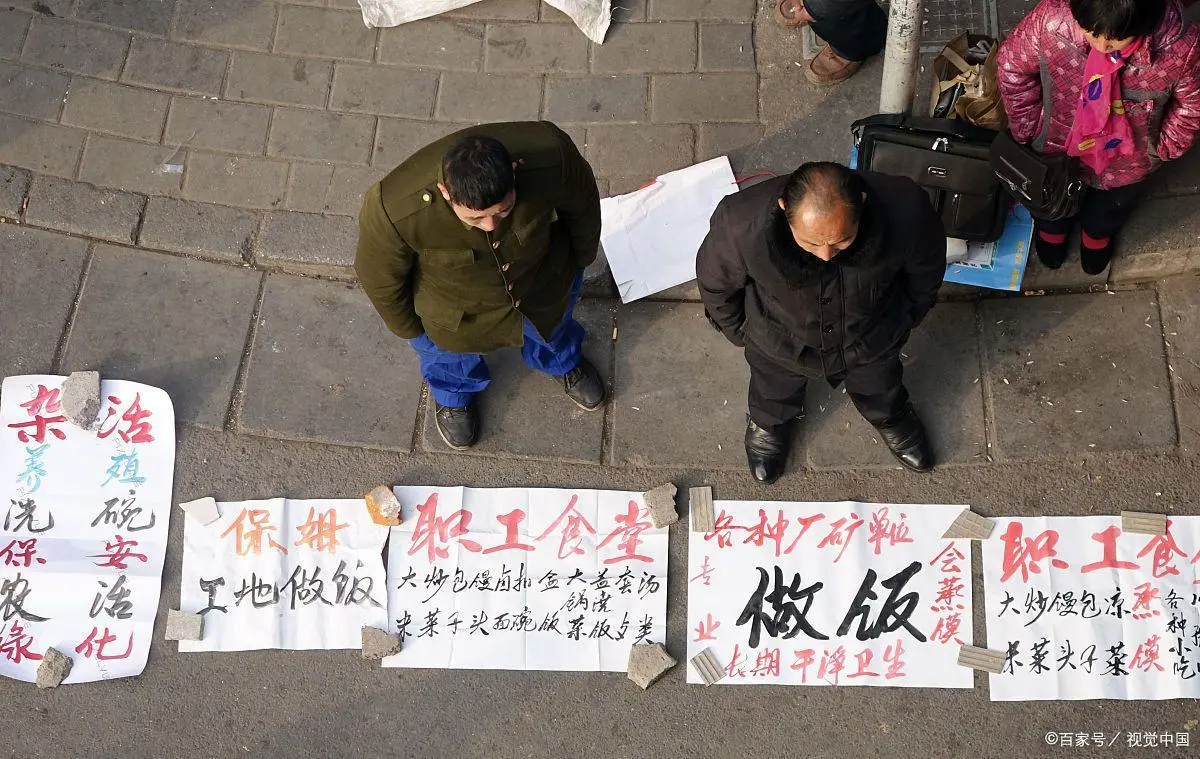 杂活
养殖
洗碗
保安
农活
绿化
保姆
工地做饭
职工食堂
大炒包馒卤扣盒大盖套汤
锅浇
米菜子头面碗饭菜饭点类
各种厂矿单位
专业
做饭
会蒸馍
长期干净卫生
职工食
大炒馒包凉蒸
米菜头子菜馍
各种小吃
©百家号／视觉中国